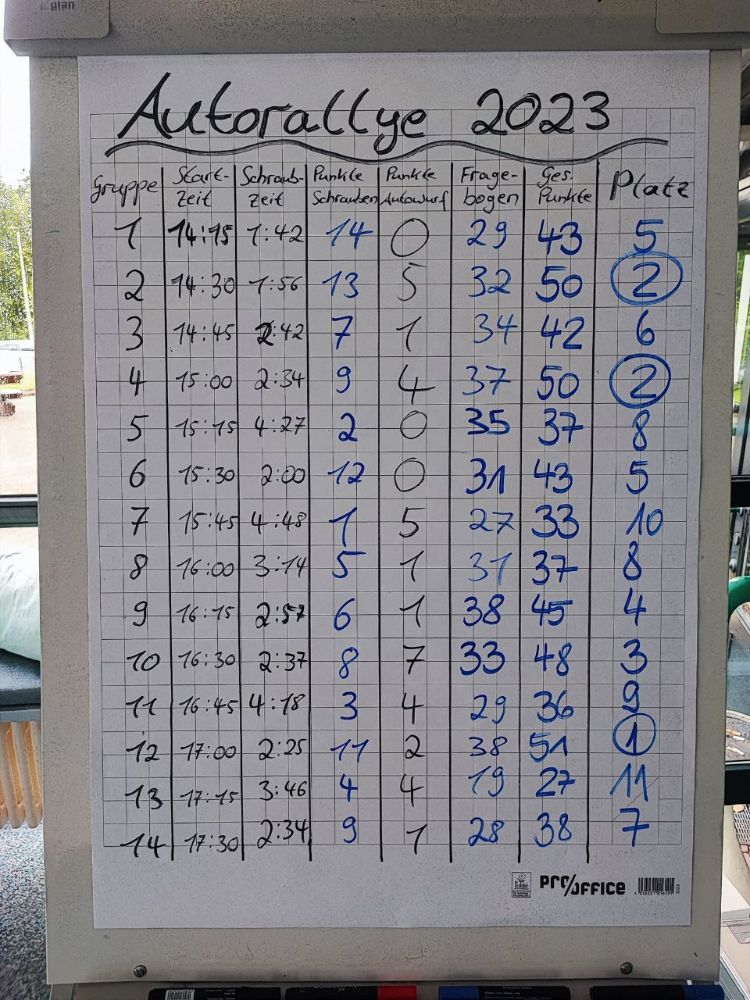 Autorallye 2023
Gruppe Start-Zeit Schraub-Zeit Punkte Schrauben Punkte Autowurf Frage-bogen Ges. Punkte Platz
1 14:15 1:42 14 0 29 43 5
2 14:30 1:56 13 5 32 50 2
3 14:45 2:42 7 1 34 42 6
4 15:00 2:34 9 4 37 50 2
5 15:15 4:27 2 0 35 37 8
6 15:30 2:00 12 0 31 43 5
7 15:45 4:48 1 5 27 33 10
8 16:00 3:14 5 1 31 37 8
9 16:15 2:57 6 1 38 45 4
10 16:30 2:37 8 7 33 48 3
11 16:45 4:18 3 4 29 36 9
12 17:00 2:25 11 2 38 51 1
13 17:15 3:46 4 4 19 27 11
14 17:30 2:34 9 1 28 38 7
PRO/OFFICE